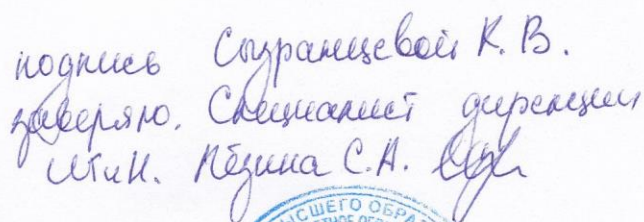 подпись Сызранцевой К. В.
заверяю. Специалист дирекции
ИТиН. Пёзина С.А.
ВЫСШЕГО ОБРА